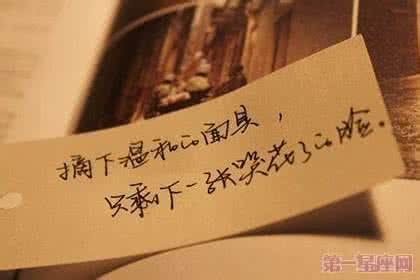 摘下温和的面具，
只剩下一张哭花了的脸。
第一星座网